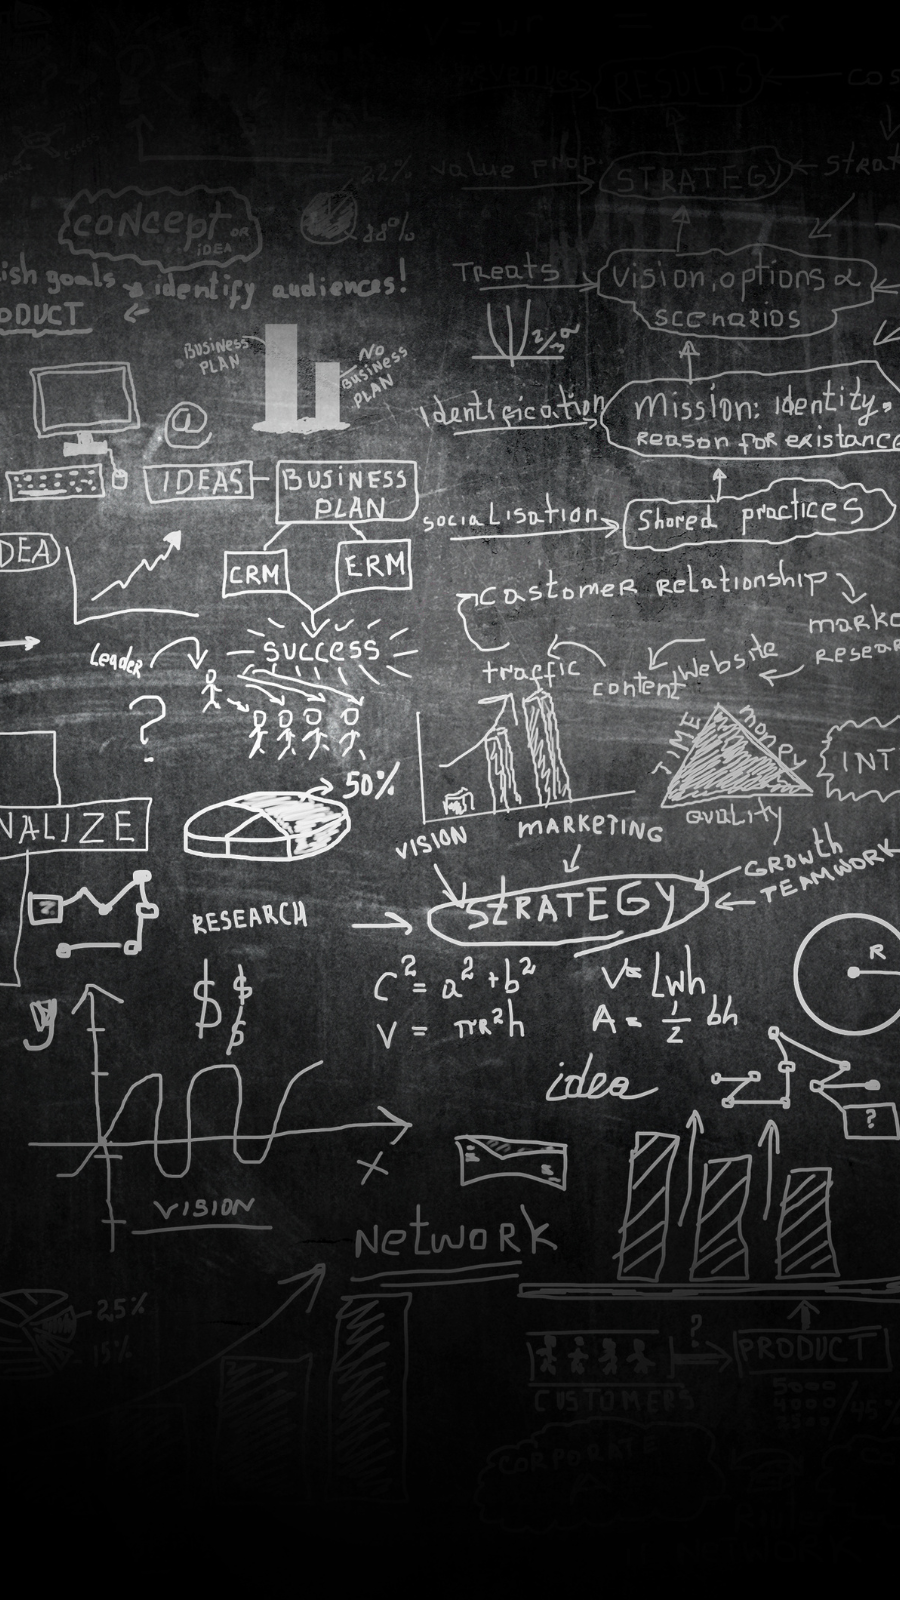 RESULTS
value prop.
STRATEGY
22%
88%
CONCEPT OR IDEA
ish goals
identify audiences!
ODUCT
Treats
Vision, options &
scenarios
BUSINESS
PLAN
NO
BUSINESS
PLAN
Identification
Mission: Identity,
Reason for existance
@
IDEAS
BUSINESS
PLAN
socialisation
Shared practices
DEA
CRM
ERM
Customer Relationship
marke
Resear
SUCCESS
Leader
traffic
content
Website
?
TIME
MONEY
QUALITY
INT
50%
NALIZE
VISION
MARKETING
Growth
TEAMWORK
STRATEGY
?
RESEARCH
R
C² = a² + b²
V = Lwh
V = πR²h
A = 1/2 bh
y
$ $ $
idea
?
x
VISION
NetwoRK
2,5%
15%
?
PRODUCT
CUSTOMERS
5000
4000
45%
CORPORATE